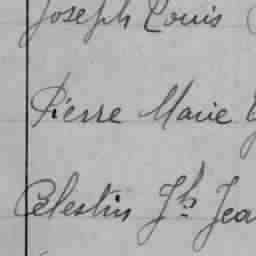 Joseph Louis
Pierre Marie
Célestin Jh Jea